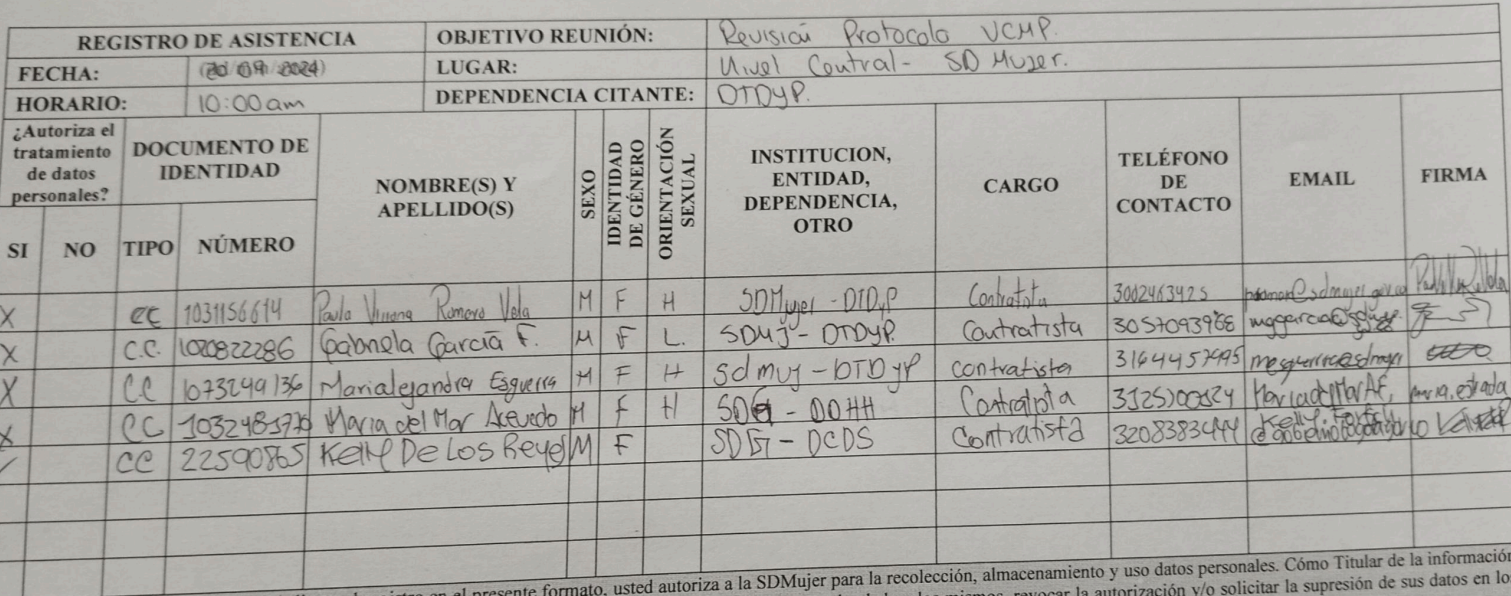 REGISTRO DE ASISTENCIA OBJETIVO REUNIÓN: Revisión Protocolo VCMP.
FECHA: (20/09/2024) LUGAR: Nivel Central - SD Mujer.
HORARIO: 10:00am DEPENDENCIA CITANTE: DTDyP.
¿Autoriza el tratamiento de datos personales? DOCUMENTO DE IDENTIDAD NOMBRE(S) Y APELLIDO(S) SEXO IDENTIDAD DE GÉNERO ORIENTACIÓN SEXUAL INSTITUCION, ENTIDAD, DEPENDENCIA, OTRO CARGO TELÉFONO DE CONTACTO EMAIL FIRMA
SI NO TIPO NÚMERO
X CC 1031156614 Paula Viviana Romero Vela M F H SDMujer - DTDyP Contratista 3002463425
X C.C. 1020822286 Gabriela García F. M F L. SDMuj - DTDyP. Contratista
X CC 1073249136 Marialejandra Esguerra M F H Sdmuj - DTDyP contratista
X CC Maria del Mar Acevedo M F H - DDHH Contratista
CC 22590865 Kelly De Los Reyes M F - DCDS Contratista
en el presente formato, usted autoriza a la SDMujer para la recolección, almacenamiento y uso datos personales. Cómo Titular de la información
revocar la autorización y/o solicitar la supresión de sus datos en lo